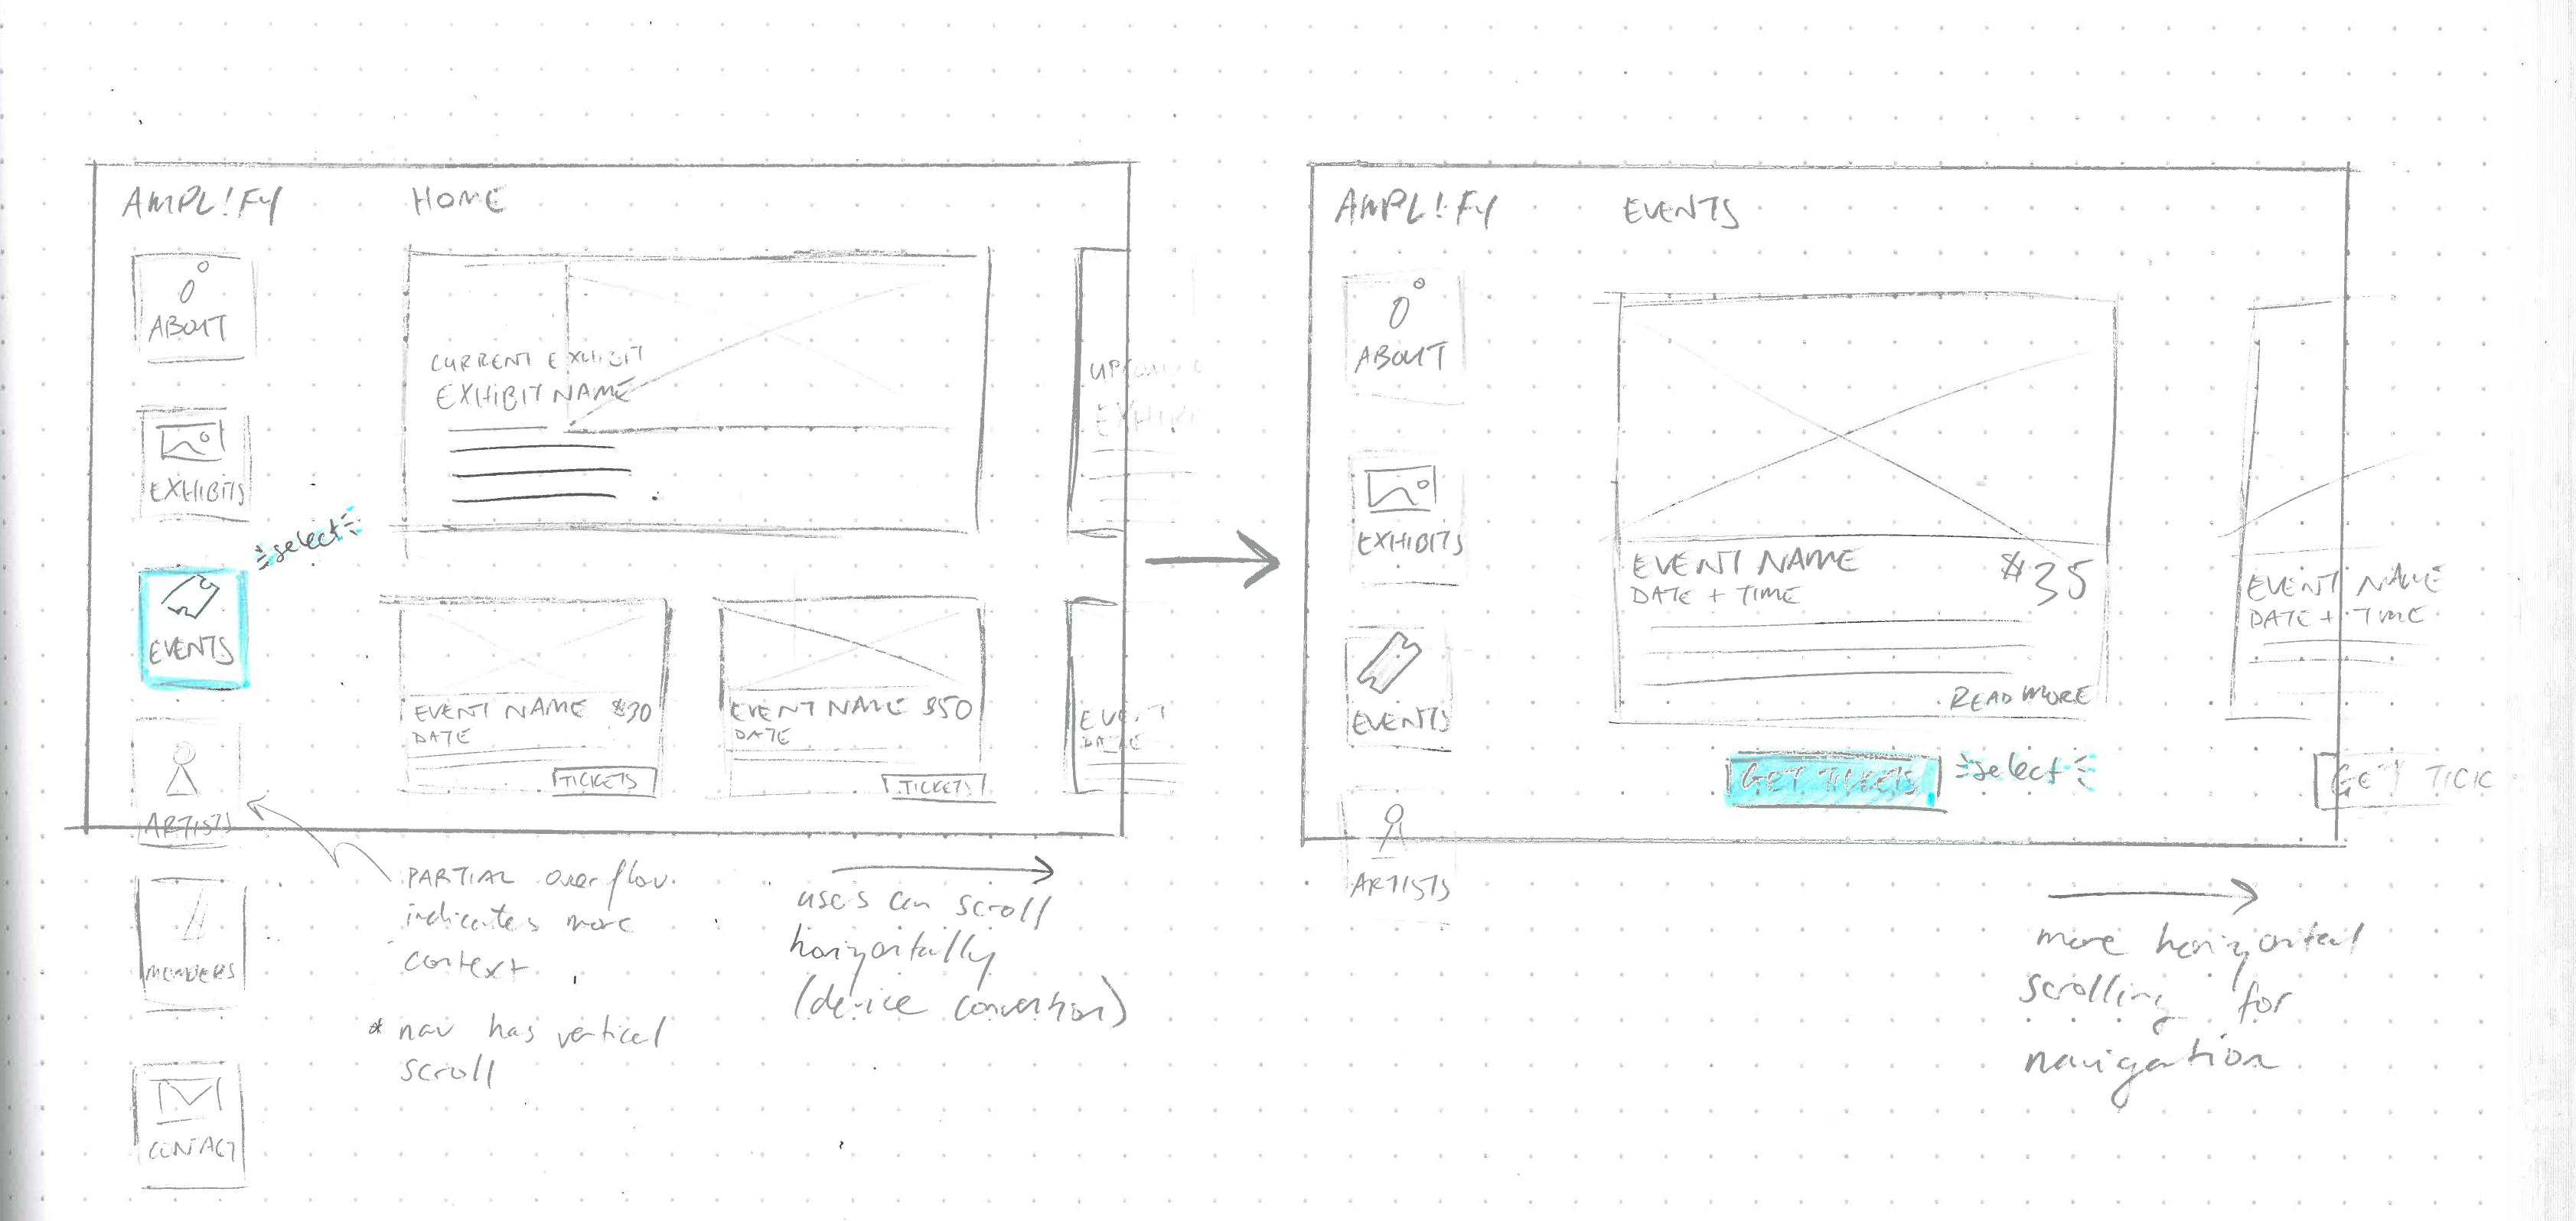 AMPL!FY
HOME
ABOUT
EXHIBITS
select
EVENTS
ARTISTS
MEMBERS
CONTACT
CURRENT EXHIBIT
EXHIBIT NAME
UPCOMING
EXHIBI
EVENT NAME $30
DATE
TICKETS
EVENT NAME $50
DATE
TICKETS
EVENT
DATE
PARTIAL overflow
indicates more
context
* nav has vertical
scroll
users can scroll
horizontally
(device convention)
AMPL!FY
EVENTS
ABOUT
EXHIBITS
EVENTS
ARTISTS
EVENT NAME $35
DATE + TIME
READ MORE
GET TICKETS
select
EVENT NAME
DATE + TIME
GET TICK
more horizontal
scrolling for
navigation